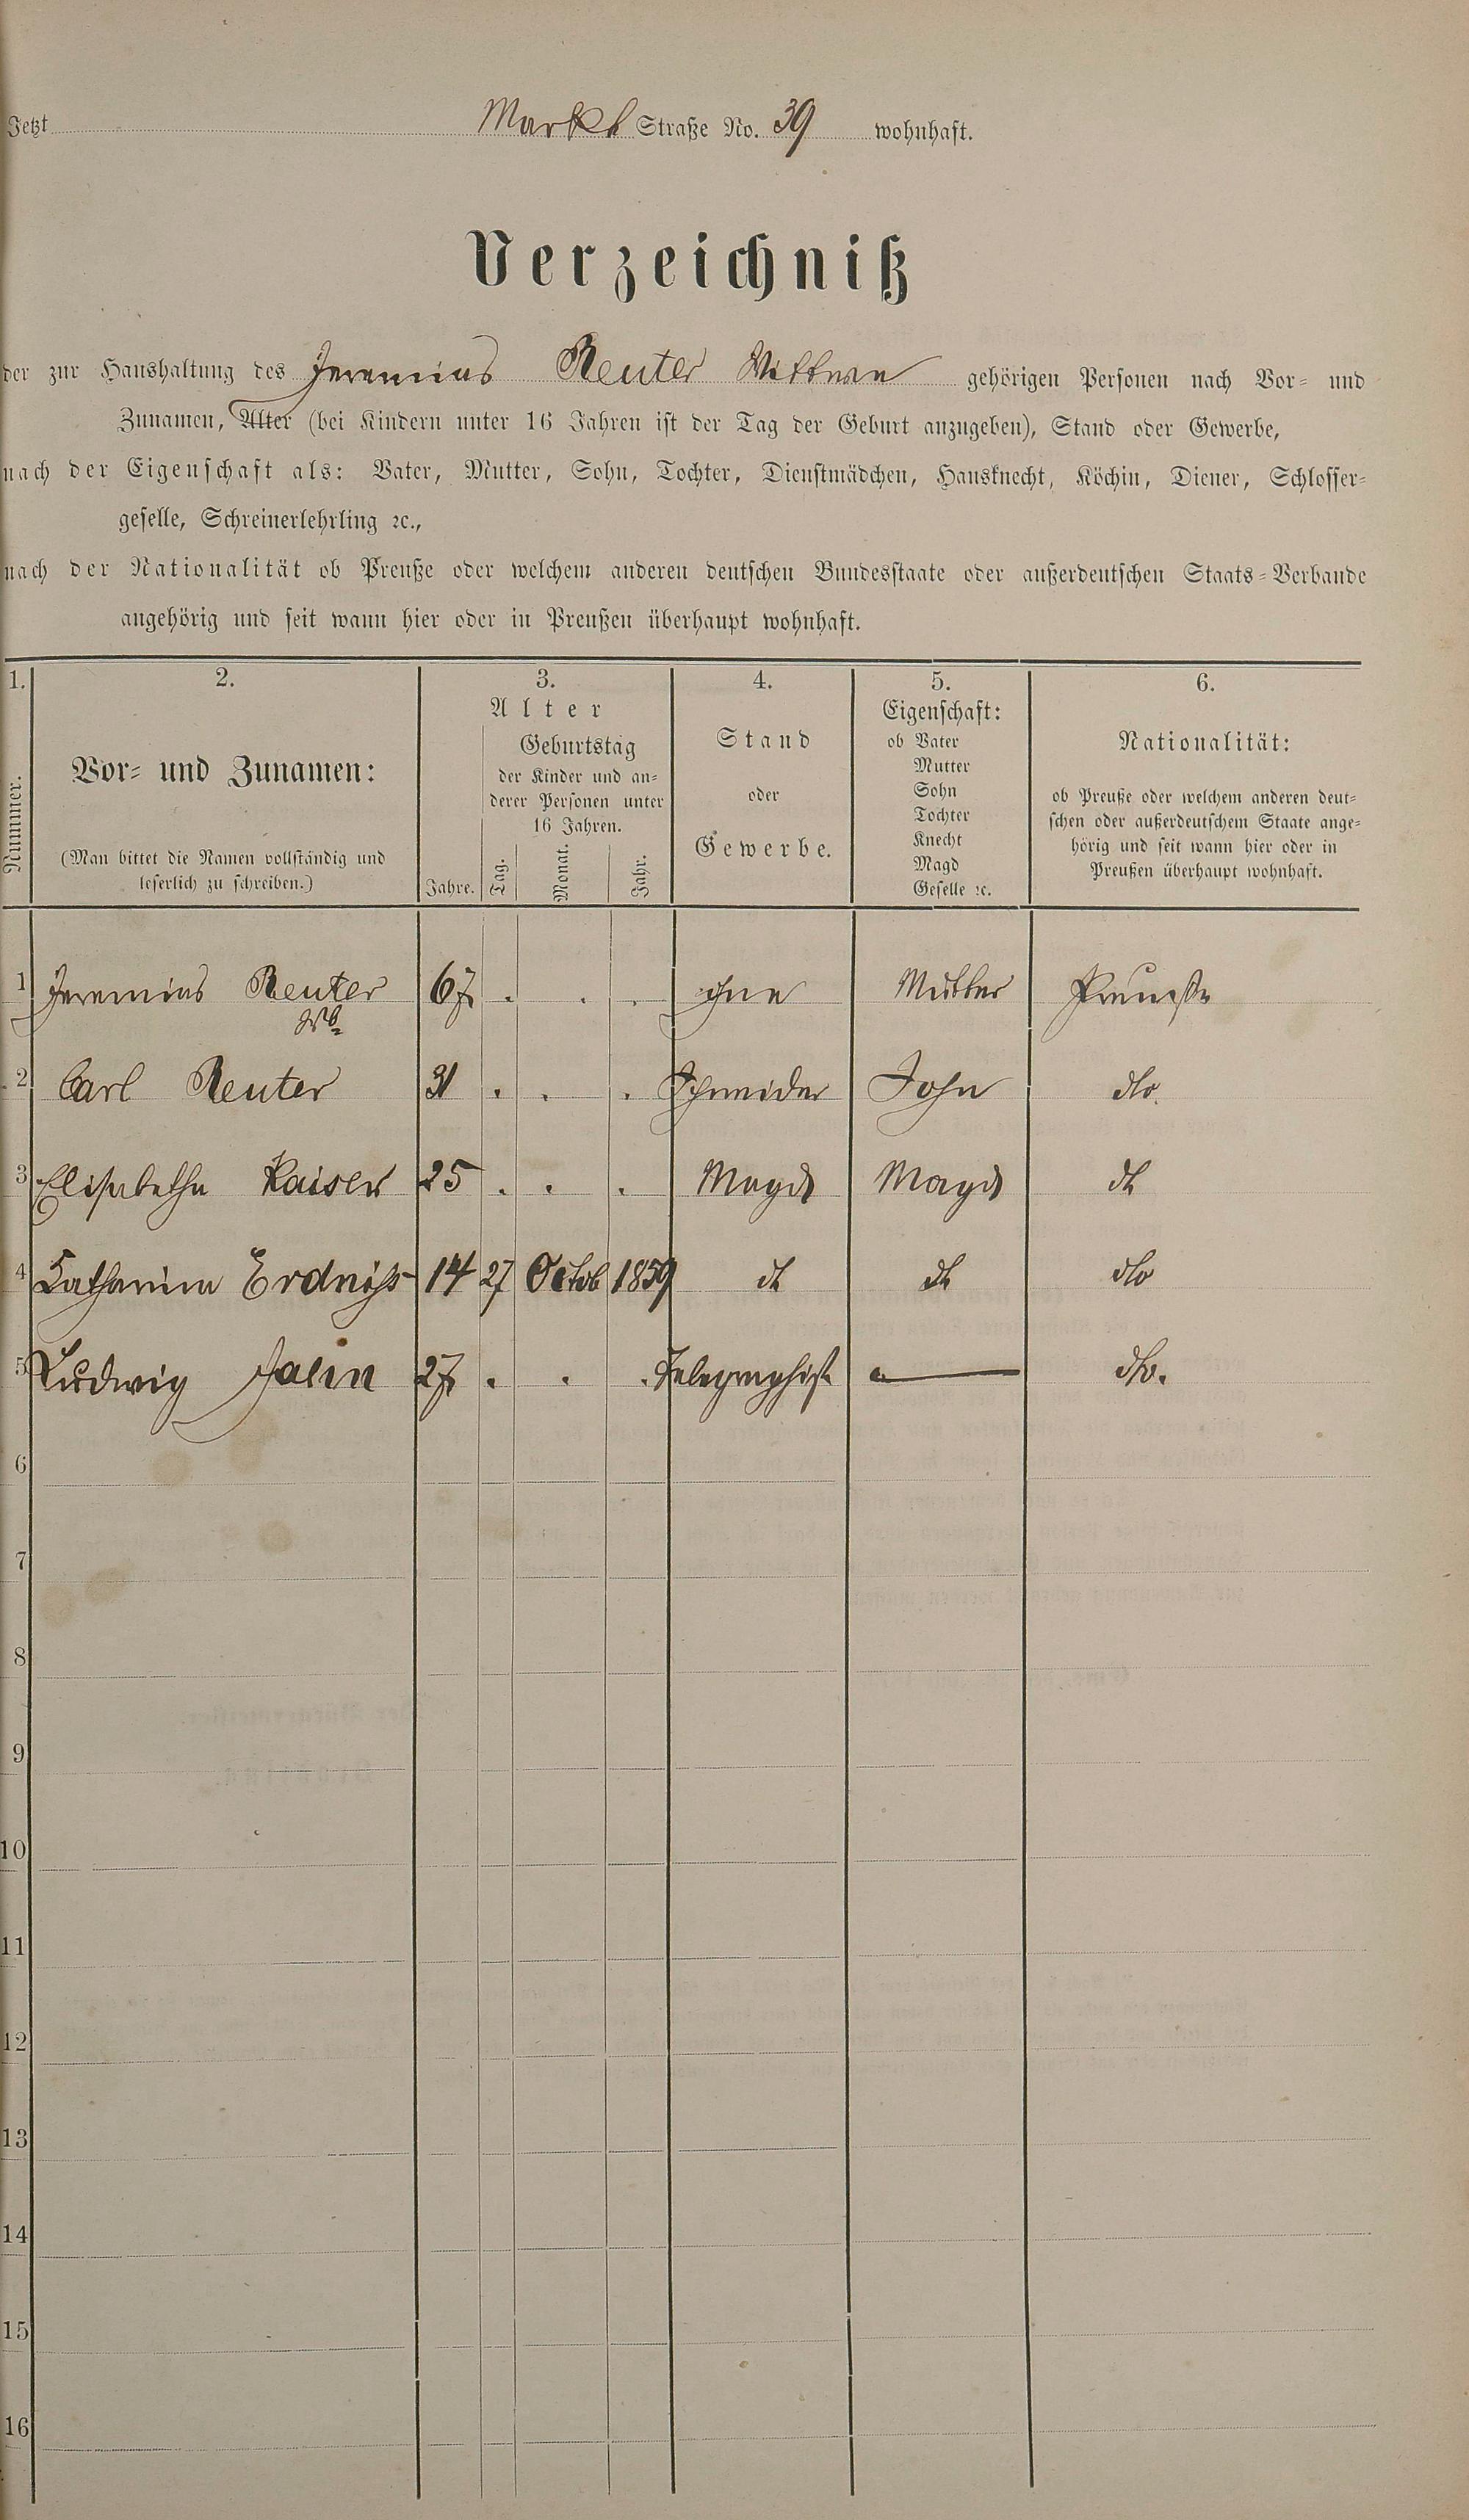 Jetzt Markt Straße No. 39 wohnhaft.
Verzeichniß
der zur Haushaltung des Jeremias Reuter Wittwe gehörigen Personen nach Vor- und
Zunamen, Alter (bei Kindern unter 16 Jahren ist der Tag der Geburt anzugeben), Stand oder Gewerbe,
nach der Eigenschaft als: Vater, Mutter, Sohn, Tochter, Dienstmädchen, Hausknecht, Köchin, Diener, Schlosser-
geselle, Schreinerlehrling ꝛc.,
nach der Nationalität ob Preuße oder welchem anderen deutschen Bundesstaate oder außerdeutschen Staats-Verbande
angehörig und seit wann hier oder in Preußen überhaupt wohnhaft.
1. 2. 3. 4. 5. 6.
Nummer.
Vor- und Zunamen:
(Man bittet die Namen vollständig und
leserlich zu schreiben.)
Alter
Geburtstag
der Kinder und an-
derer Personen unter
16 Jahren.
Jahre. Tag. Monat. Jahr.
Stand
oder
Gewerbe.
Eigenschaft:
ob Vater
Mutter
Sohn
Tochter
Knecht
Magd
Geselle ꝛc.
Nationalität:
ob Preuße oder welchem anderen deut-
schen oder außerdeutschem Staate ange-
hörig und seit wann hier oder in
Preußen überhaupt wohnhaft.
1 Jeremias Reuter 67 . . . ohne Mutter Preuße
Wb
2 Carl Reuter 31 . . . Schneider Sohn dto.
3 Elisabetha Kaiser 25 . . . Magd Magd dt
4 Catharina 14 27 Octob 1859 dt dt dto
5 Ludwig Jahn 27 . . . Telegraphist — dto.
6
7
8
9
10
11
12
13
14
15
16